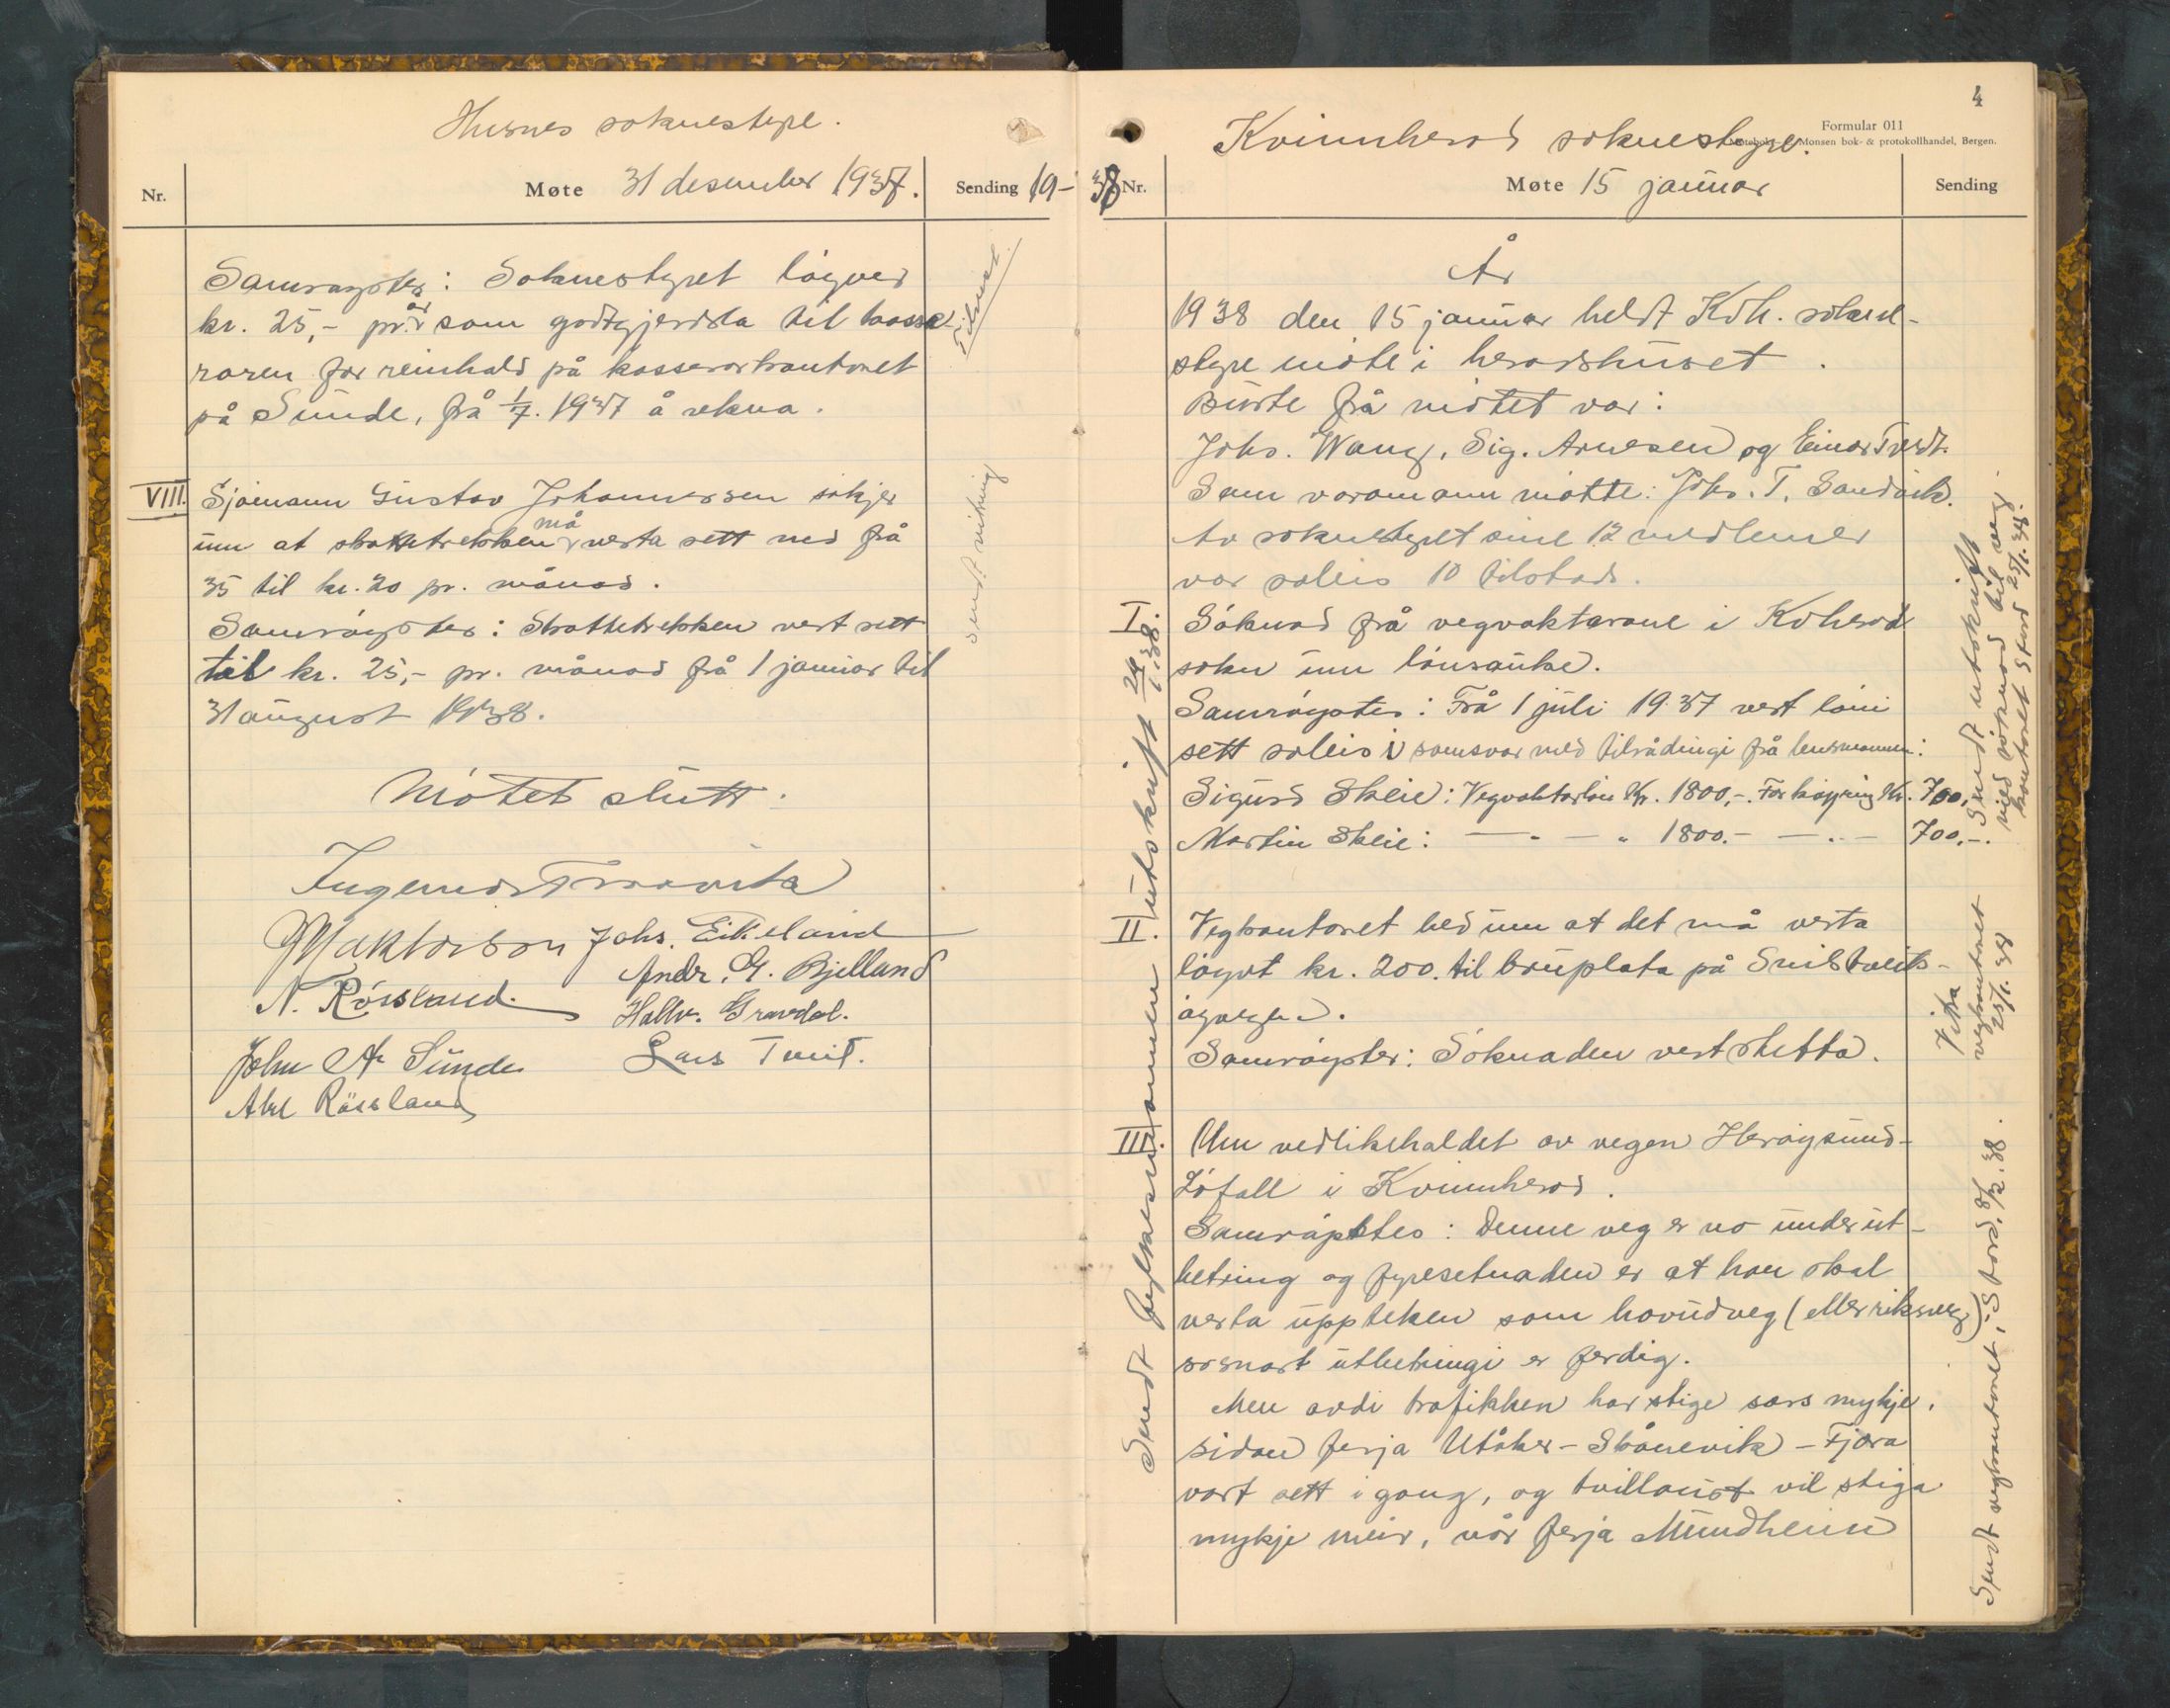 Husnes soknestyre.
Nr.
Møte 31 desember 1937.
Sending 19-
Samrøystes: Soknestyret løyver
kr. 25,- pr. år som godtgjerdsla til kasse-
raren for reinhald på kasserarkontoret
på Sunde, frå 1/7. 1937 å rekna.
VIII. Sjømann Gustav Johannessen søkjer
um at skattetrekken må verta sett ned frå
35 til kr. 20 pr. månad.
Samrøystes: Skattetrekken vert sett
til kr. 25,- pr. månad frå 1 januar til
31 august 1938.
Sendt melding
Møtet slutt.
Johs. Eikeland
Andr. G. Bjelland
N. Røssland.
Hallv. Gravdal.
John A Sunde
Lars Tveit.
Abel Røssland
4
Kvinnherad soknestyre.
Formular 011
Monsen bok- & protokollhandel, Bergen.
38 Nr.
Møte 15 januar
Sending
År
1938 den 15 januar heldt Kvh. sokne-
styre møte i heradshuset.
Burte frå møtet var:
Johs. Wang, Sig. Arnesen og Einar Tvedt.
Som varamann møtte: Johs. T. Sandvik.
Av soknestyret sine 12 medlemer
var soleis 10 tilstads.
I. Søknad frå vegvaktarane i Kvherad
sokn um lønsauke.
Samrøystes: Frå 1 juli 1937 vert løni
sett soleis i samsvar med tilrådingi frå lensmannen:
Sigurd Skeie: Vegvaktarløn Kr. 1800,-. For køyring Kr. 700,-
Martin Skeie: — " — " 1800.- — " — 700,-.
Sendt fylkesmannen utskrift 24/1.38.
Sendt utskrift
med søknad til veg-
kontoret Stord 25/1.38.
II. Vegkontoret bed um at det må verta
løyvt kr. 200. til bruplata på Snilstveit-
øyvegen.
Samrøystes: Søknaden vert stetta.
vegkontoret
25/1.38
III. Um vedlikehaldet av vegen Herøysund-
Løfall i Kvinnherad.
Samrøystes: Denne veg er no under ut-
betring og fyresetnaden er at han skal
verta uppteken som hovudveg (eller riksveg)
sosnart utbetringi er ferdig.
Men avdi trafikken har stige sers mykje,
sidan ferja Utåker - Skånevik - Fjæra
vart sett i gang, og tvillaust vil stiga
mykje meir, når ferja Mundheim
Sendt vegkontoret, Stord, 8/2.38.